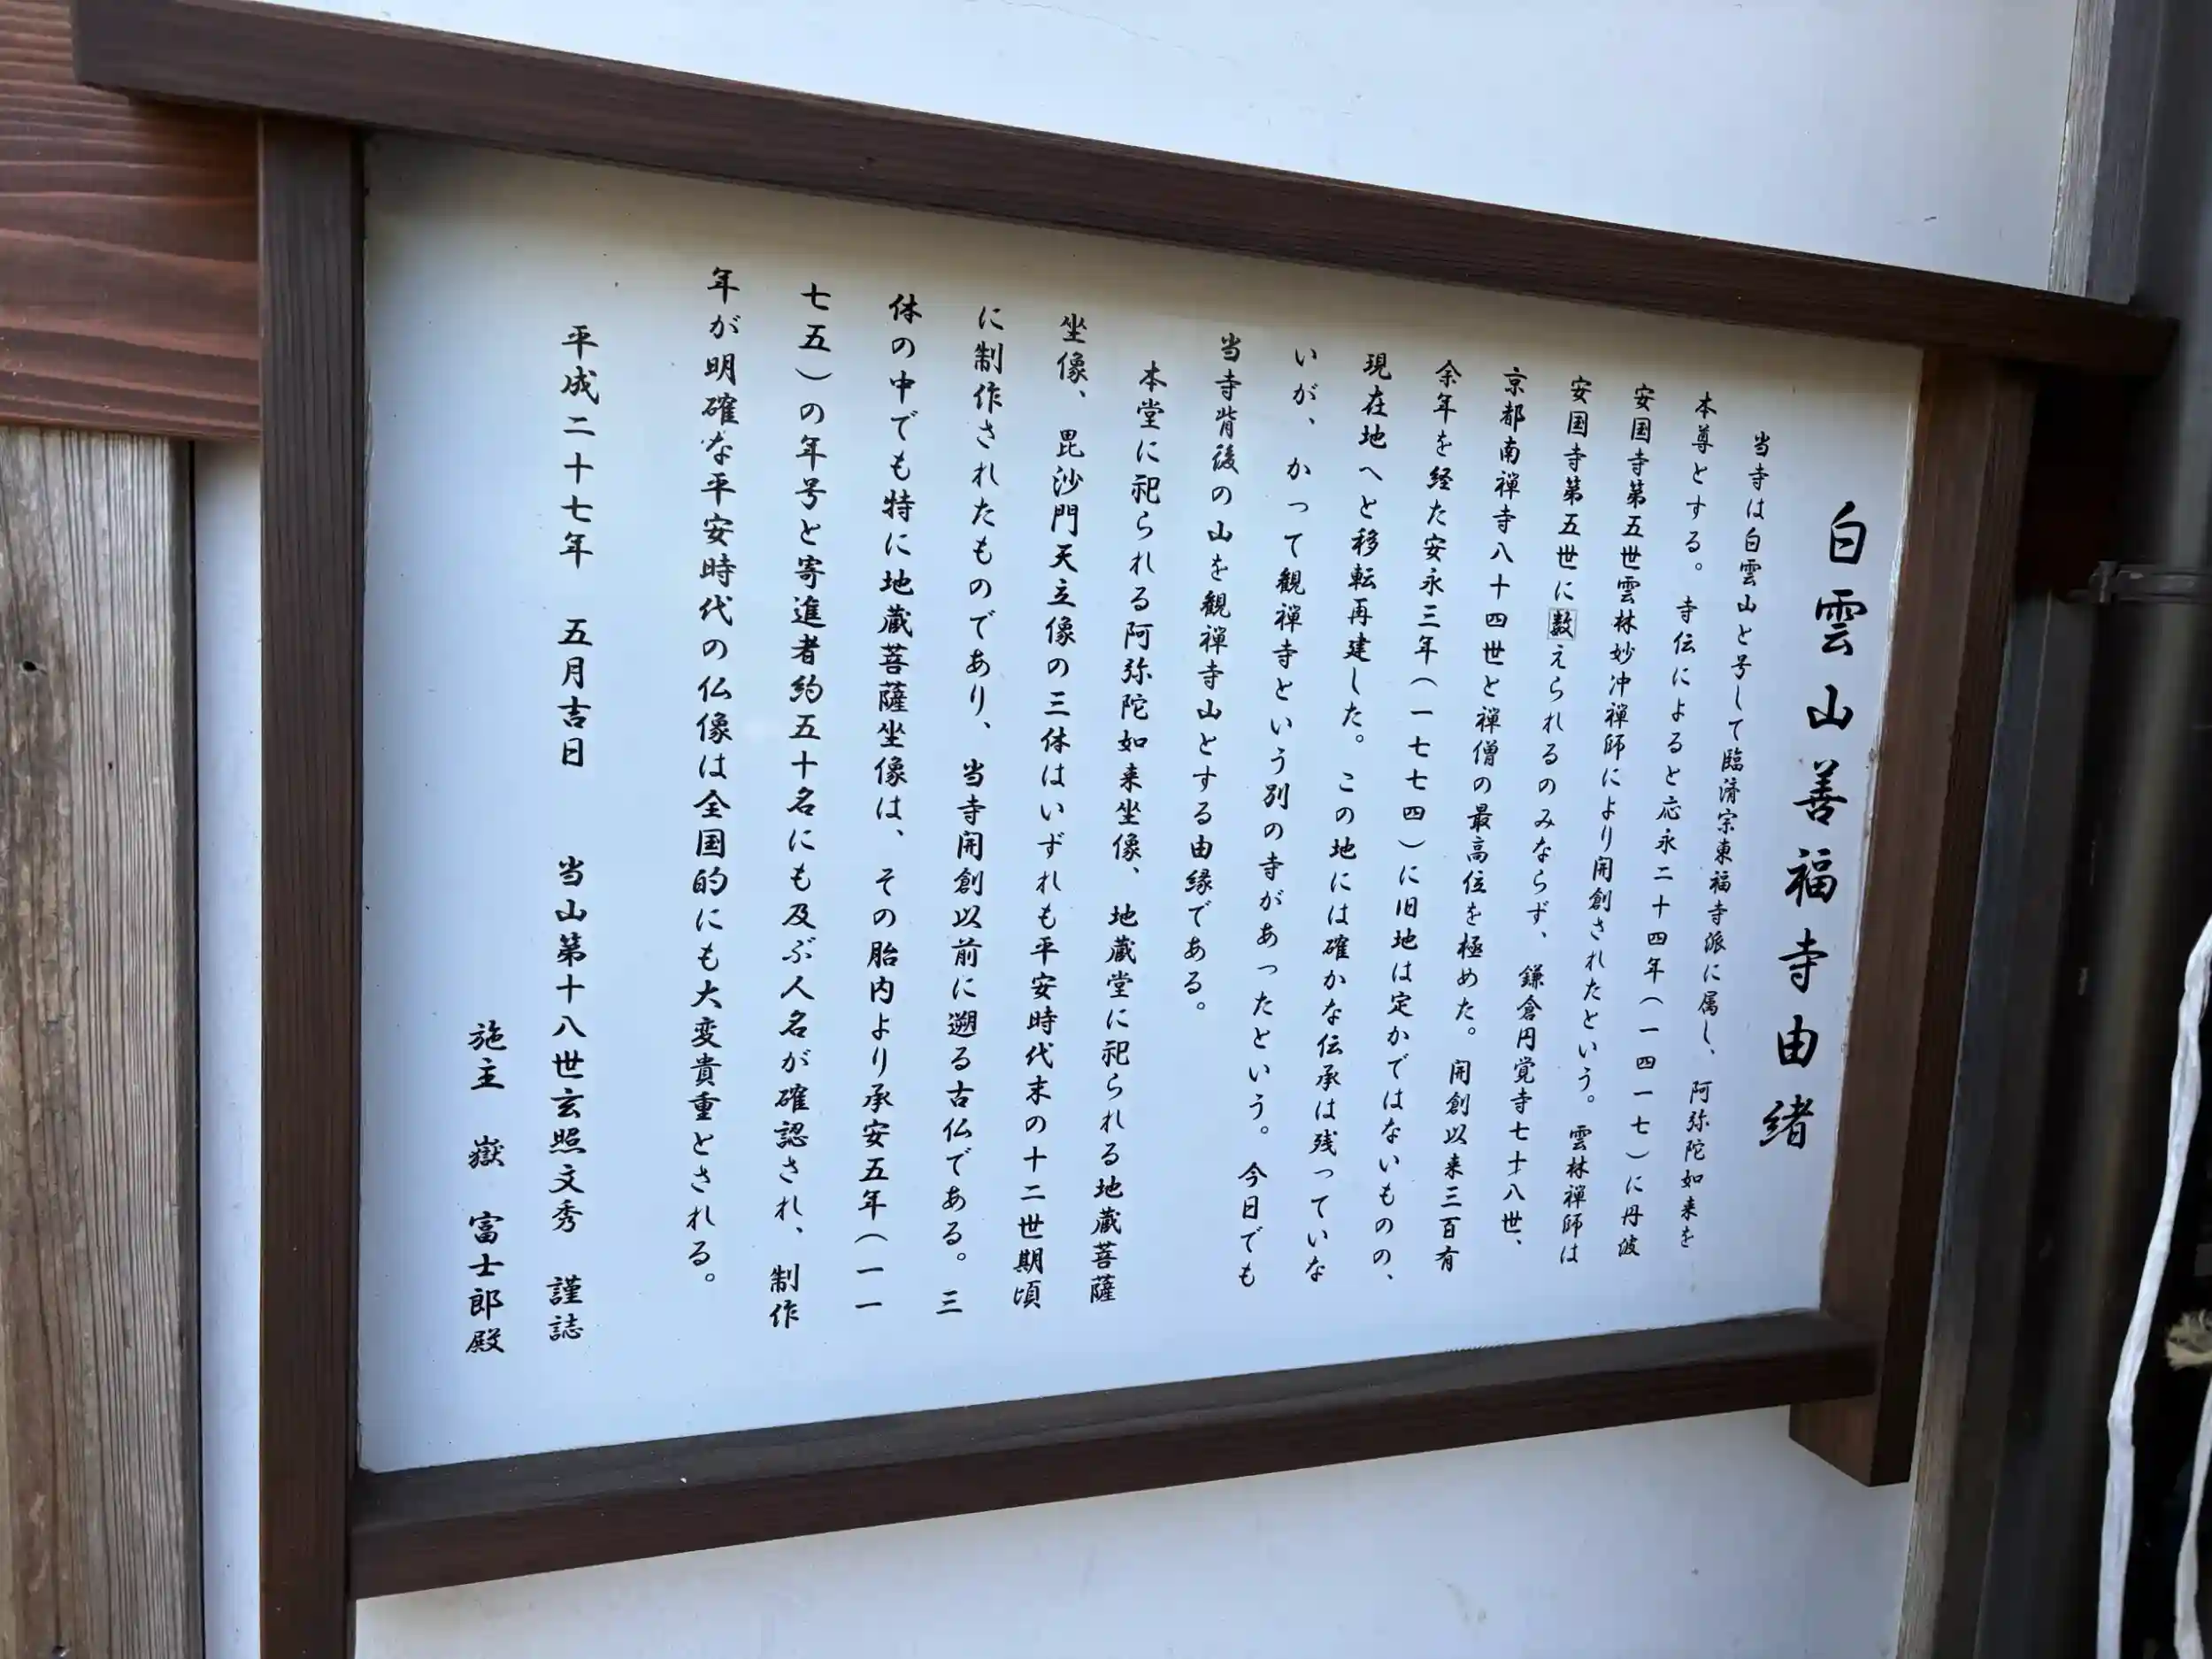 白雲山善福寺由緒
当寺は白雲山と号して臨済宗東福寺派に属し、阿弥陀如来を
本尊とする。寺伝によると応永二十四年（一四一七）に丹波
安国寺第五世雲林妙冲禅師により開創されたという。雲林禅師は
安国寺第五世に数えられるのみならず、鎌倉円覚寺七十八世、
京都南禅寺八十四世と禅僧の最高位を極めた。開創以来三百有
余年を経た安永三年（一七七四）に旧地は定かではないものの、
現在地へと移転再建した。この地には確かな伝承は残っていな
いが、かって観禅寺という別の寺があったという。今日でも
当寺背後の山を観禅寺山とする由縁である。
本堂に祀られる阿弥陀如来坐像、地蔵堂に祀られる地蔵菩薩
坐像、毘沙門天立像の三体はいずれも平安時代末の十二世期頃
に制作されたものであり、当寺開創以前に遡る古仏である。三
体の中でも特に地蔵菩薩坐像は、その胎内より承安五年（一一
七五）の年号と寄進者約五十名にも及ぶ人名が確認され、制作
年が明確な平安時代の仏像は全国的にも大変貴重とされる。
平成二十七年 五月吉日 当山第十八世玄照文秀 謹誌
施主 嶽 富士郎殿